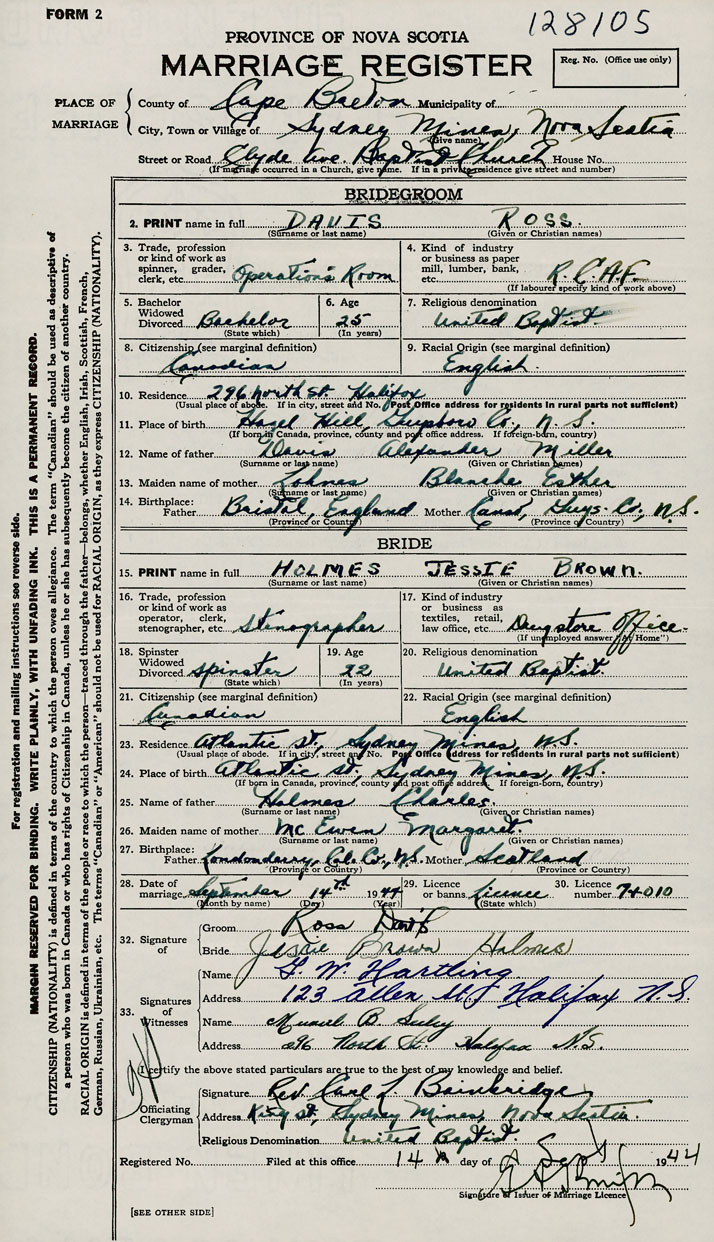 FORM 2
128105
PROVINCE OF NOVA SCOTIA
MARRIAGE REGISTER
Reg. No. (Office use only)
PLACE OF MARRIAGE
County of Cape Breton Municipality of
City, Town or Village of Sydney Mines, Nova Scotia
(Give name)
Street or Road Clyde Ave. Baptist Church House No.
(If marriage occurred in a Church, give name. If in a private residence give street and number)
BRIDEGROOM
2. PRINT name in full DAVIS ROSS.
(Surname or last name) (Given or Christian names)
3. Trade, profession or kind of work as spinner, grader, clerk, etc. Operations Room
4. Kind of industry or business as paper mill, lumber, bank, etc. R.C.A.F.
(If labourer specify kind of work above)
5. Bachelor Widowed Divorced Bachelor
(State which)
6. Age 25
(In years)
7. Religious denomination
United Baptist.
8. Citizenship (see marginal definition)
Canadian
9. Racial Origin (see marginal definition)
English.
10. Residence 296 North St. Halifax
(Usual place of abode. If in city, street and No. Post Office address for residents in rural parts not sufficient)
11. Place of birth Hazel Hill, Guysboro Co., N.S.
(If born in Canada, province, county and post office address. If foreign-born, country)
12. Name of father Davis Alexander Miller
(Surname or last name) (Given or Christian names)
13. Maiden name of mother Lohnes Blanche Esther
(Surname or last name) (Given or Christian names)
14. Birthplace: Father Bristol, England Mother Canso, Guys. Co., N.S.
(Province or Country) (Province or Country)
BRIDE
15. PRINT name in full HOLMES JESSIE BROWN.
(Surname or last name) (Given or Christian names)
16. Trade, profession or kind of work as operator, clerk, stenographer, etc. Stenographer
17. Kind of industry or business as textiles, retail, law office, etc. Drugstore Office.
(If unemployed answer "At Home")
18. Spinster Widowed Divorced Spinster
(State which)
19. Age 22
(In years)
20. Religious denomination
United Baptist.
21. Citizenship (see marginal definition)
Canadian
22. Racial Origin (see marginal definition)
English
23. Residence Atlantic St., Sydney Mines, N.S.
(Usual place of abode. If in city, street and No. Post Office address for residents in rural parts not sufficient)
24. Place of birth Atlantic St., Sydney Mines, N.S.
(If born in Canada, province, county and post office address. If foreign-born, country)
25. Name of father Holmes Charles.
(Surname or last name) (Given or Christian names)
26. Maiden name of mother McEwen Margaret.
(Surname or last name) (Given or Christian names)
27. Birthplace: Father Londonderry, Col. Co., N.S. Mother Scotland
(Province or Country) (Province or Country)
28. Date of marriage September 14th 1944
(Month by name) (Day) (Year)
29. Licence or banns licence
(State which)
30. Licence number 74010
32. Signature of
Groom Ross Davis
Bride Jessie Brown Holmes
33. Signatures of Witnesses
Name G. W. Hartling
Address 123 Allen St. Halifax N.S.
Name Muriel B.
Address 296 North St. Halifax N.S.
I certify the above stated particulars are true to the best of my knowledge and belief.
Officiating Clergyman
Signature Rev. Carl L. Bainbridge
Address King St., Sydney Mines, Nova Scotia.
Religious Denomination United Baptist.
Registered No. Filed at this office 14 day of Sept 1944
Signature of Issuer of Marriage Licence
[SEE OTHER SIDE]
For registration and mailing instructions see reverse side.
MARGIN RESERVED FOR BINDING. WRITE PLAINLY, WITH UNFADING INK. THIS IS A PERMANENT RECORD.
CITIZENSHIP (NATIONALITY) is defined in terms of the country to which the person owes allegiance. The term "Canadian" should be used as descriptive of
a person who was born in Canada or who has rights of Citizenship in Canada, unless he or she has subsequently become the citizen of another country.
RACIAL ORIGIN is defined in terms of the people or race to which the person—traced through the father—belongs, whether English, Irish, Scottish, French,
German, Russian, Ukrainian, etc. The terms "Canadian" or "American" should not be used for RACIAL ORIGIN, as they express CITIZENSHIP (NATIONALITY).